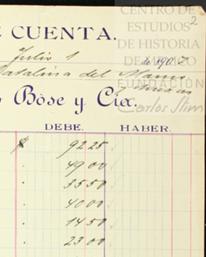 E CUENTA.
CENTRO DE
ESTUDIOS
DE HISTORIA
DE MÉXICO
FUNDACIÓN
Carlos Slim
2
Julio 1 de 190
Catalina del
Bôse y Cía.
DEBE. HABER.
$ 92 25
" 49 00
" 35 50
" 40 00
" 14 50
" 23 00